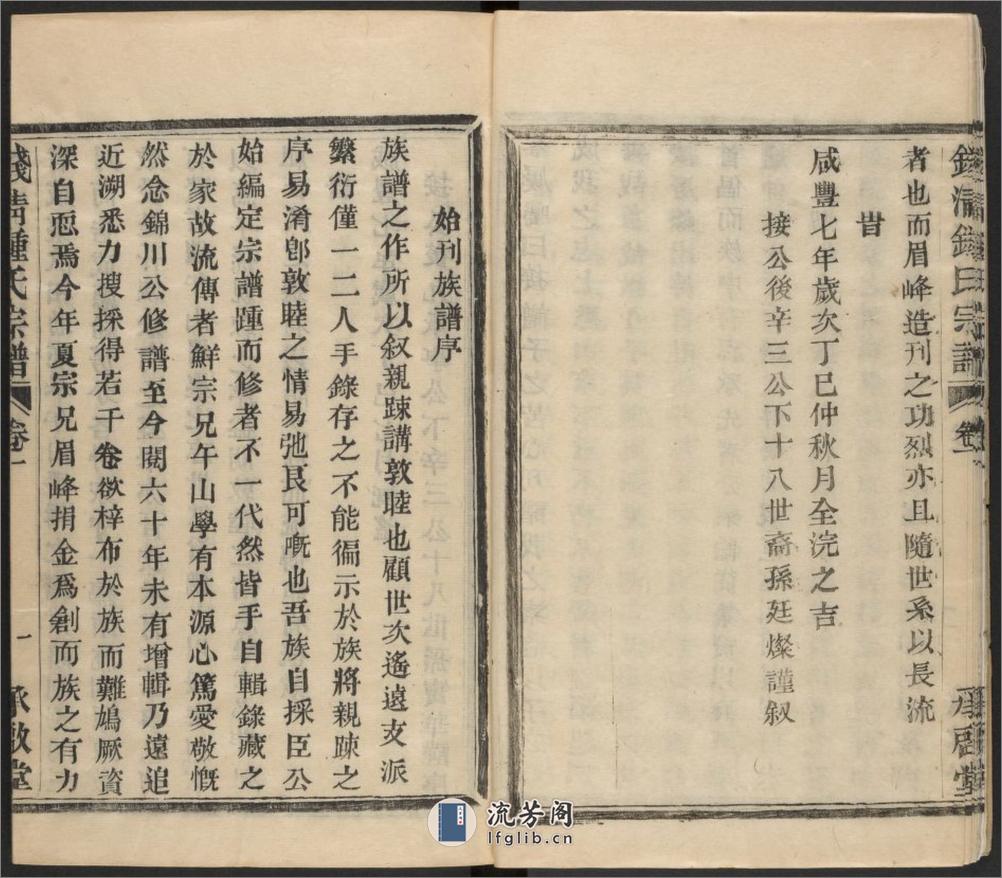 者也而眉峰造刊之功烈亦且隨世系以長流
旹
咸豐七年歲次丁巳仲秋月全浣之吉
接公後辛三公下十八世裔孫廷燦謹叙
始刊族譜序
族譜之作所以叙親踈講敦睦也顧世次遙遠支派
繁衍僅一二人手錄存之不能徧示於族將親踈之
序易淆卽敦睦之情易弛艮可嘅也吾族自採臣公
始編定宗譜踵而修者不一代然皆手自輯錄藏之
於家故流傳者鮮宗兄午山學有本源心篤愛敬慨
然念錦川公修譜至今閱六十年未有增輯乃遠追
近溯悉力搜採得若干卷欲梓布於族而難鳩厥資
深自恧焉今年夏宗兄眉峰捐金爲創而族之有力
錢清鍾氏宗譜
卷一
一
承啟堂
流芳阁
lfglib.cn